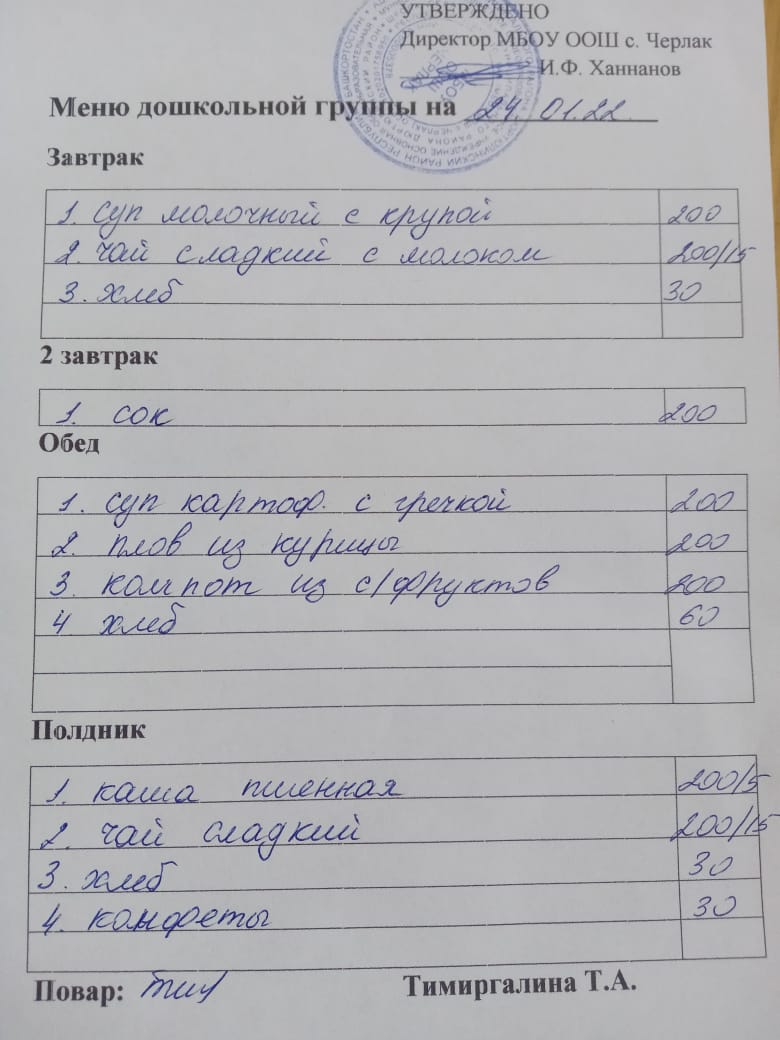 УТВЕРЖДЕНО
Директор МБОУ ООШ с. Черлак
И.Ф. Ханнанов
Меню дошкольной группы на 24.01.22
Завтрак
1. суп молочный с крупой 200
2. чай сладкий с молоком 200/15
3. хлеб 30
2 завтрак
1. сок 200
Обед
1. суп картоф. с гречкой 200
2. плов из курицы 200
3 компот из с/фруктов 200
4 хлеб 60
Полдник
1. каша пшенная 200/5
2. чай сладкий 200/15
3. хлеб 30
4. конфеты 30
Повар: Тимиргалина Т.А.